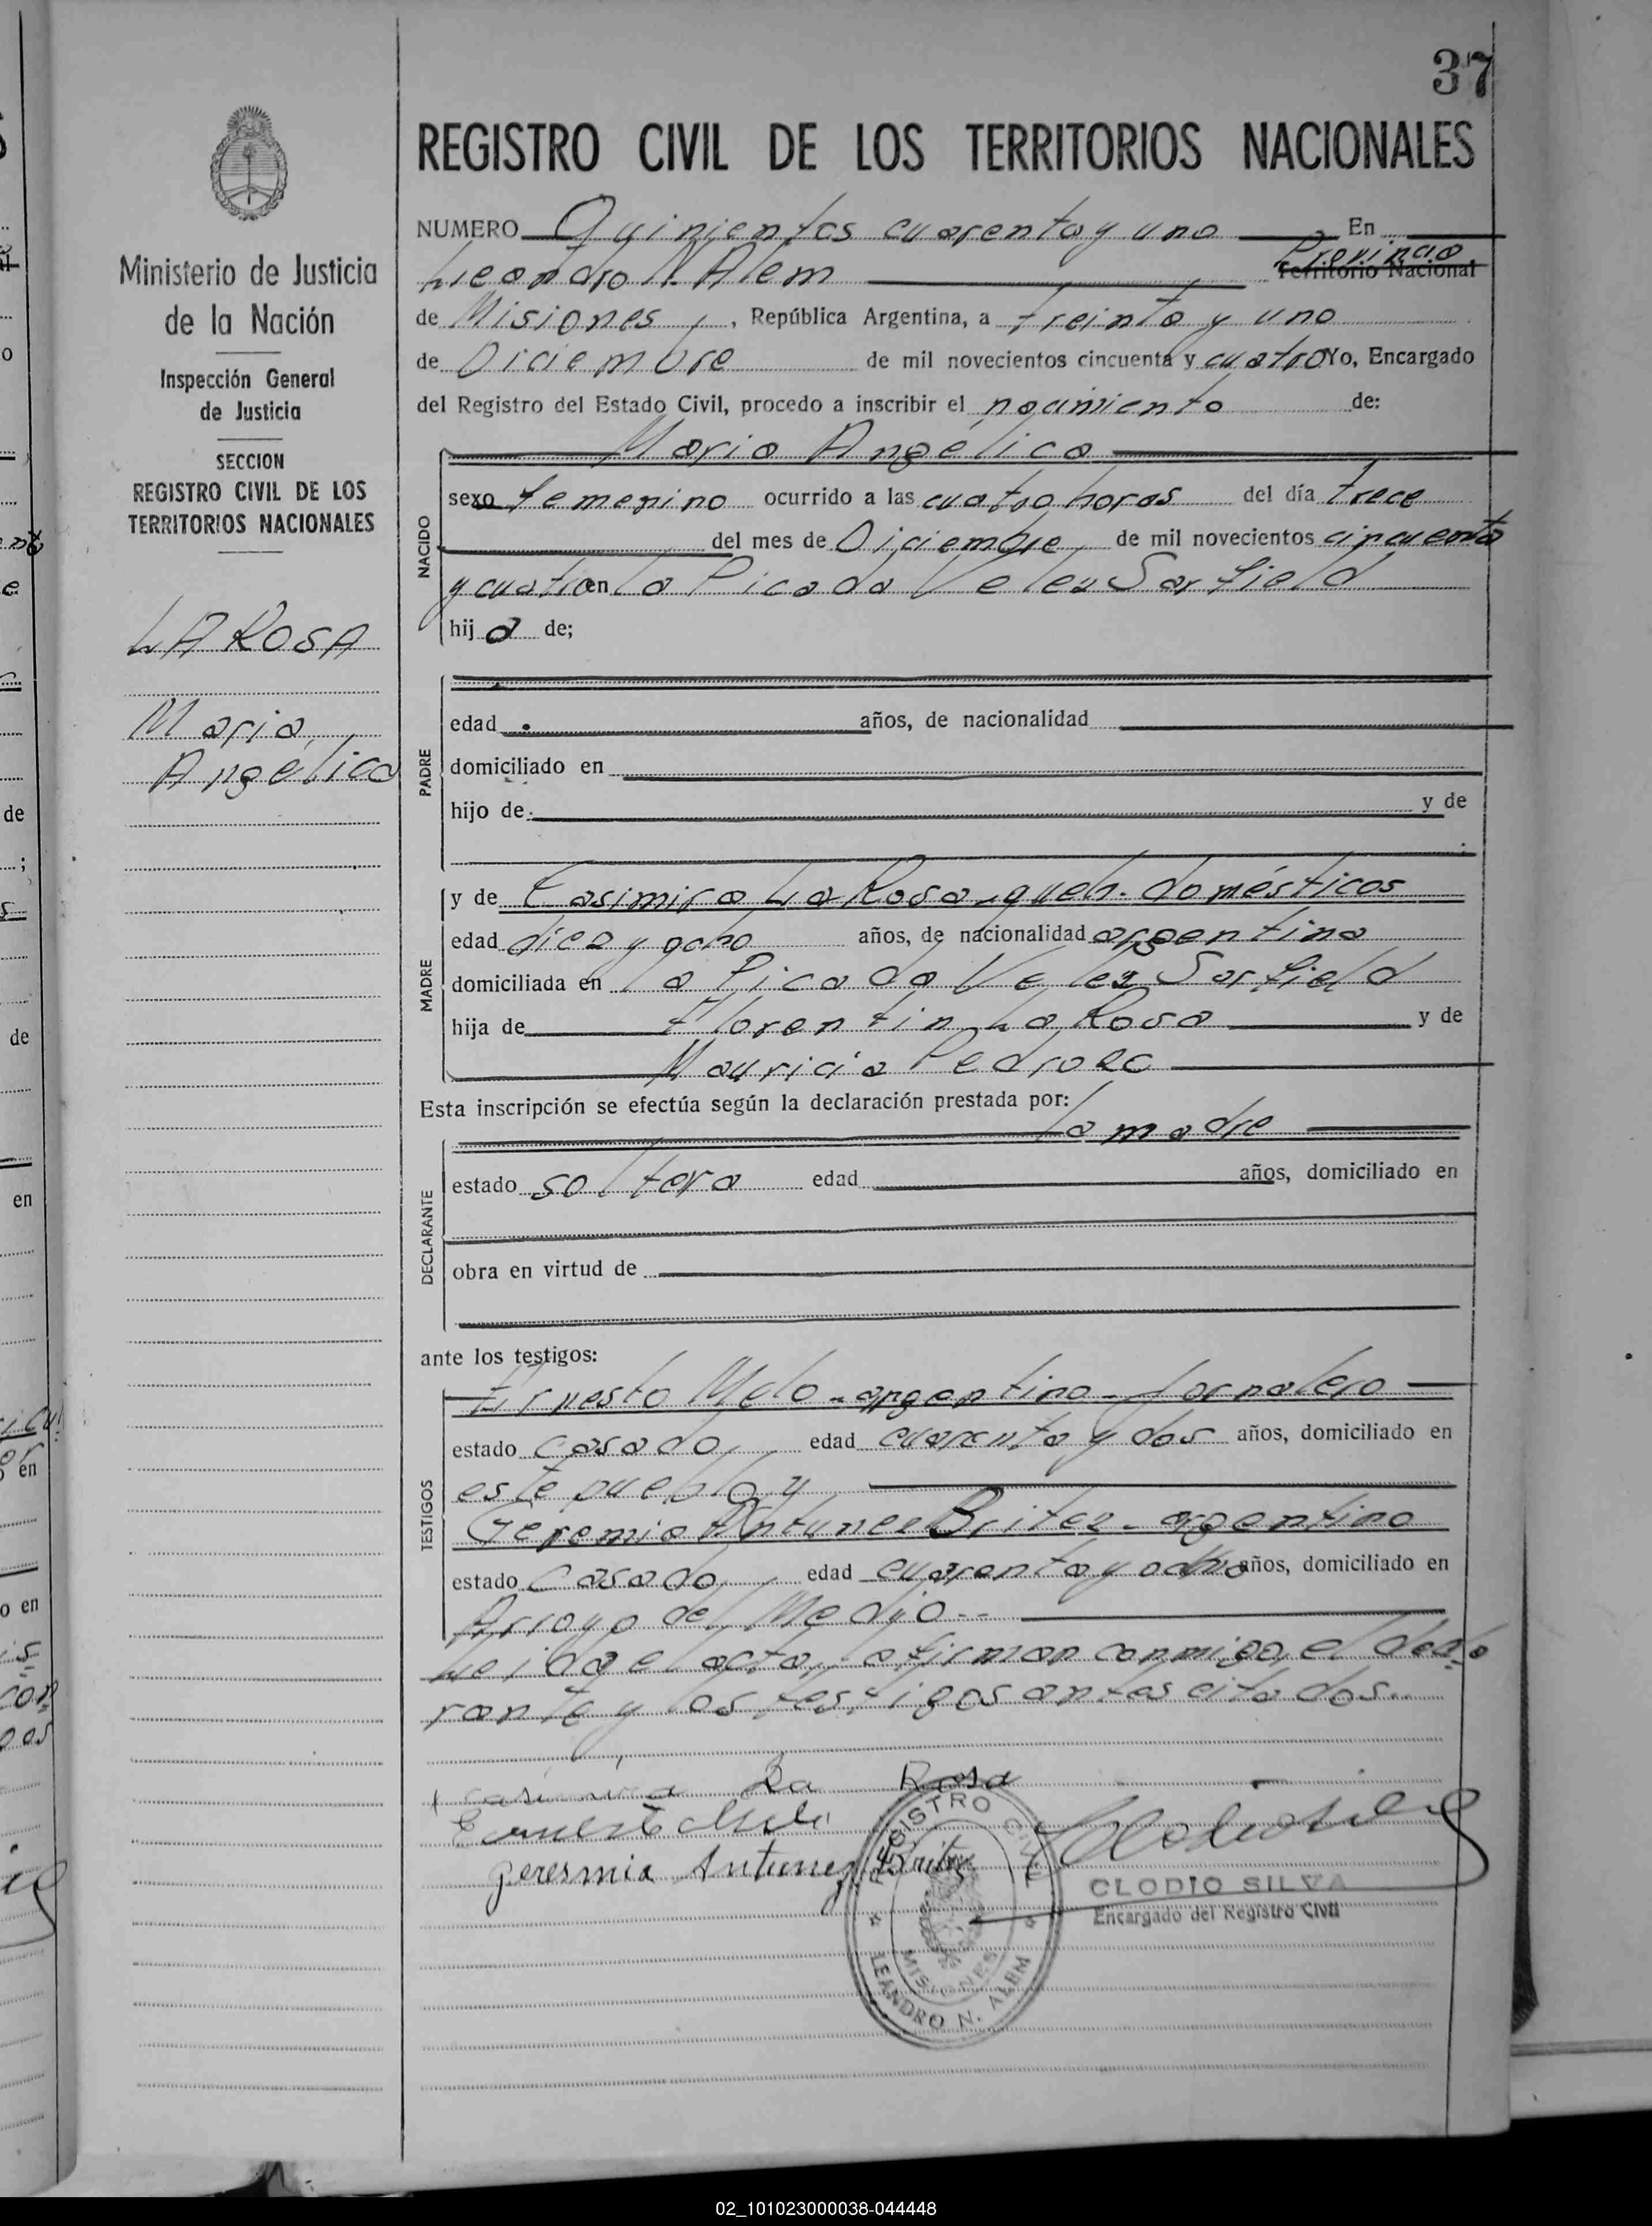 37
REGISTRO CIVIL DE LOS TERRITORIOS NACIONALES
NUMERO Quinientos cuarenta y uno En
Leandro N. Alem Provincia Territorio Nacional
de Misiones, República Argentina, a treinta y uno
de Diciembre de mil novecientos cincuenta y cuatro Yo, Encargado
del Registro del Estado Civil, procedo a inscribir el nacimiento de:
Maria Angélica
NACIDO
sexo femenino ocurrido a las cuatro horas del día trece
del mes de Diciembre de mil novecientos cincuenta
y cuatro en la Picada Velez Sarfield
hija de;
PADRE
edad años, de nacionalidad
domiciliado en
hijo de: y de
MADRE
y de Casimira La Rosa - queh. domésticos
edad diez y ocho años, de nacionalidad argentina
domiciliada en la Picada Velez Sarfield
hija de Florentin La Rosa y de
Mauricia Pedrozo
Esta inscripción se efectúa según la declaración prestada por:
la madre
DECLARANTE
estado soltera edad años, domiciliado en
obra en virtud de
ante los testigos:
TESTIGOS
Ernesto Melo - argentino - Jornalero
estado casado, edad cuarenta y dos años, domiciliado en
este pueblo y
Geremia Antunez Britez - argentino
estado casado, edad cuarenta y ocho años, domiciliado en
Arroyo del Medio --
Leida el acta, la firman conmigo, el decla
rante y los testigos antes citados..
Casimira La Rosa
Ernesto Melo
Geresmia Antunez Britez
REGISTRO CIVIL
MISIONES
LEANDRO N. ALEM
CLODIO SILVA
Encargado del Registro Civil
Ministerio de Justicia
de la Nación
Inspección General
de Justicia
SECCION
REGISTRO CIVIL DE LOS
TERRITORIOS NACIONALES
LA ROSA
Maria
Angélica
02_101023000038-044448